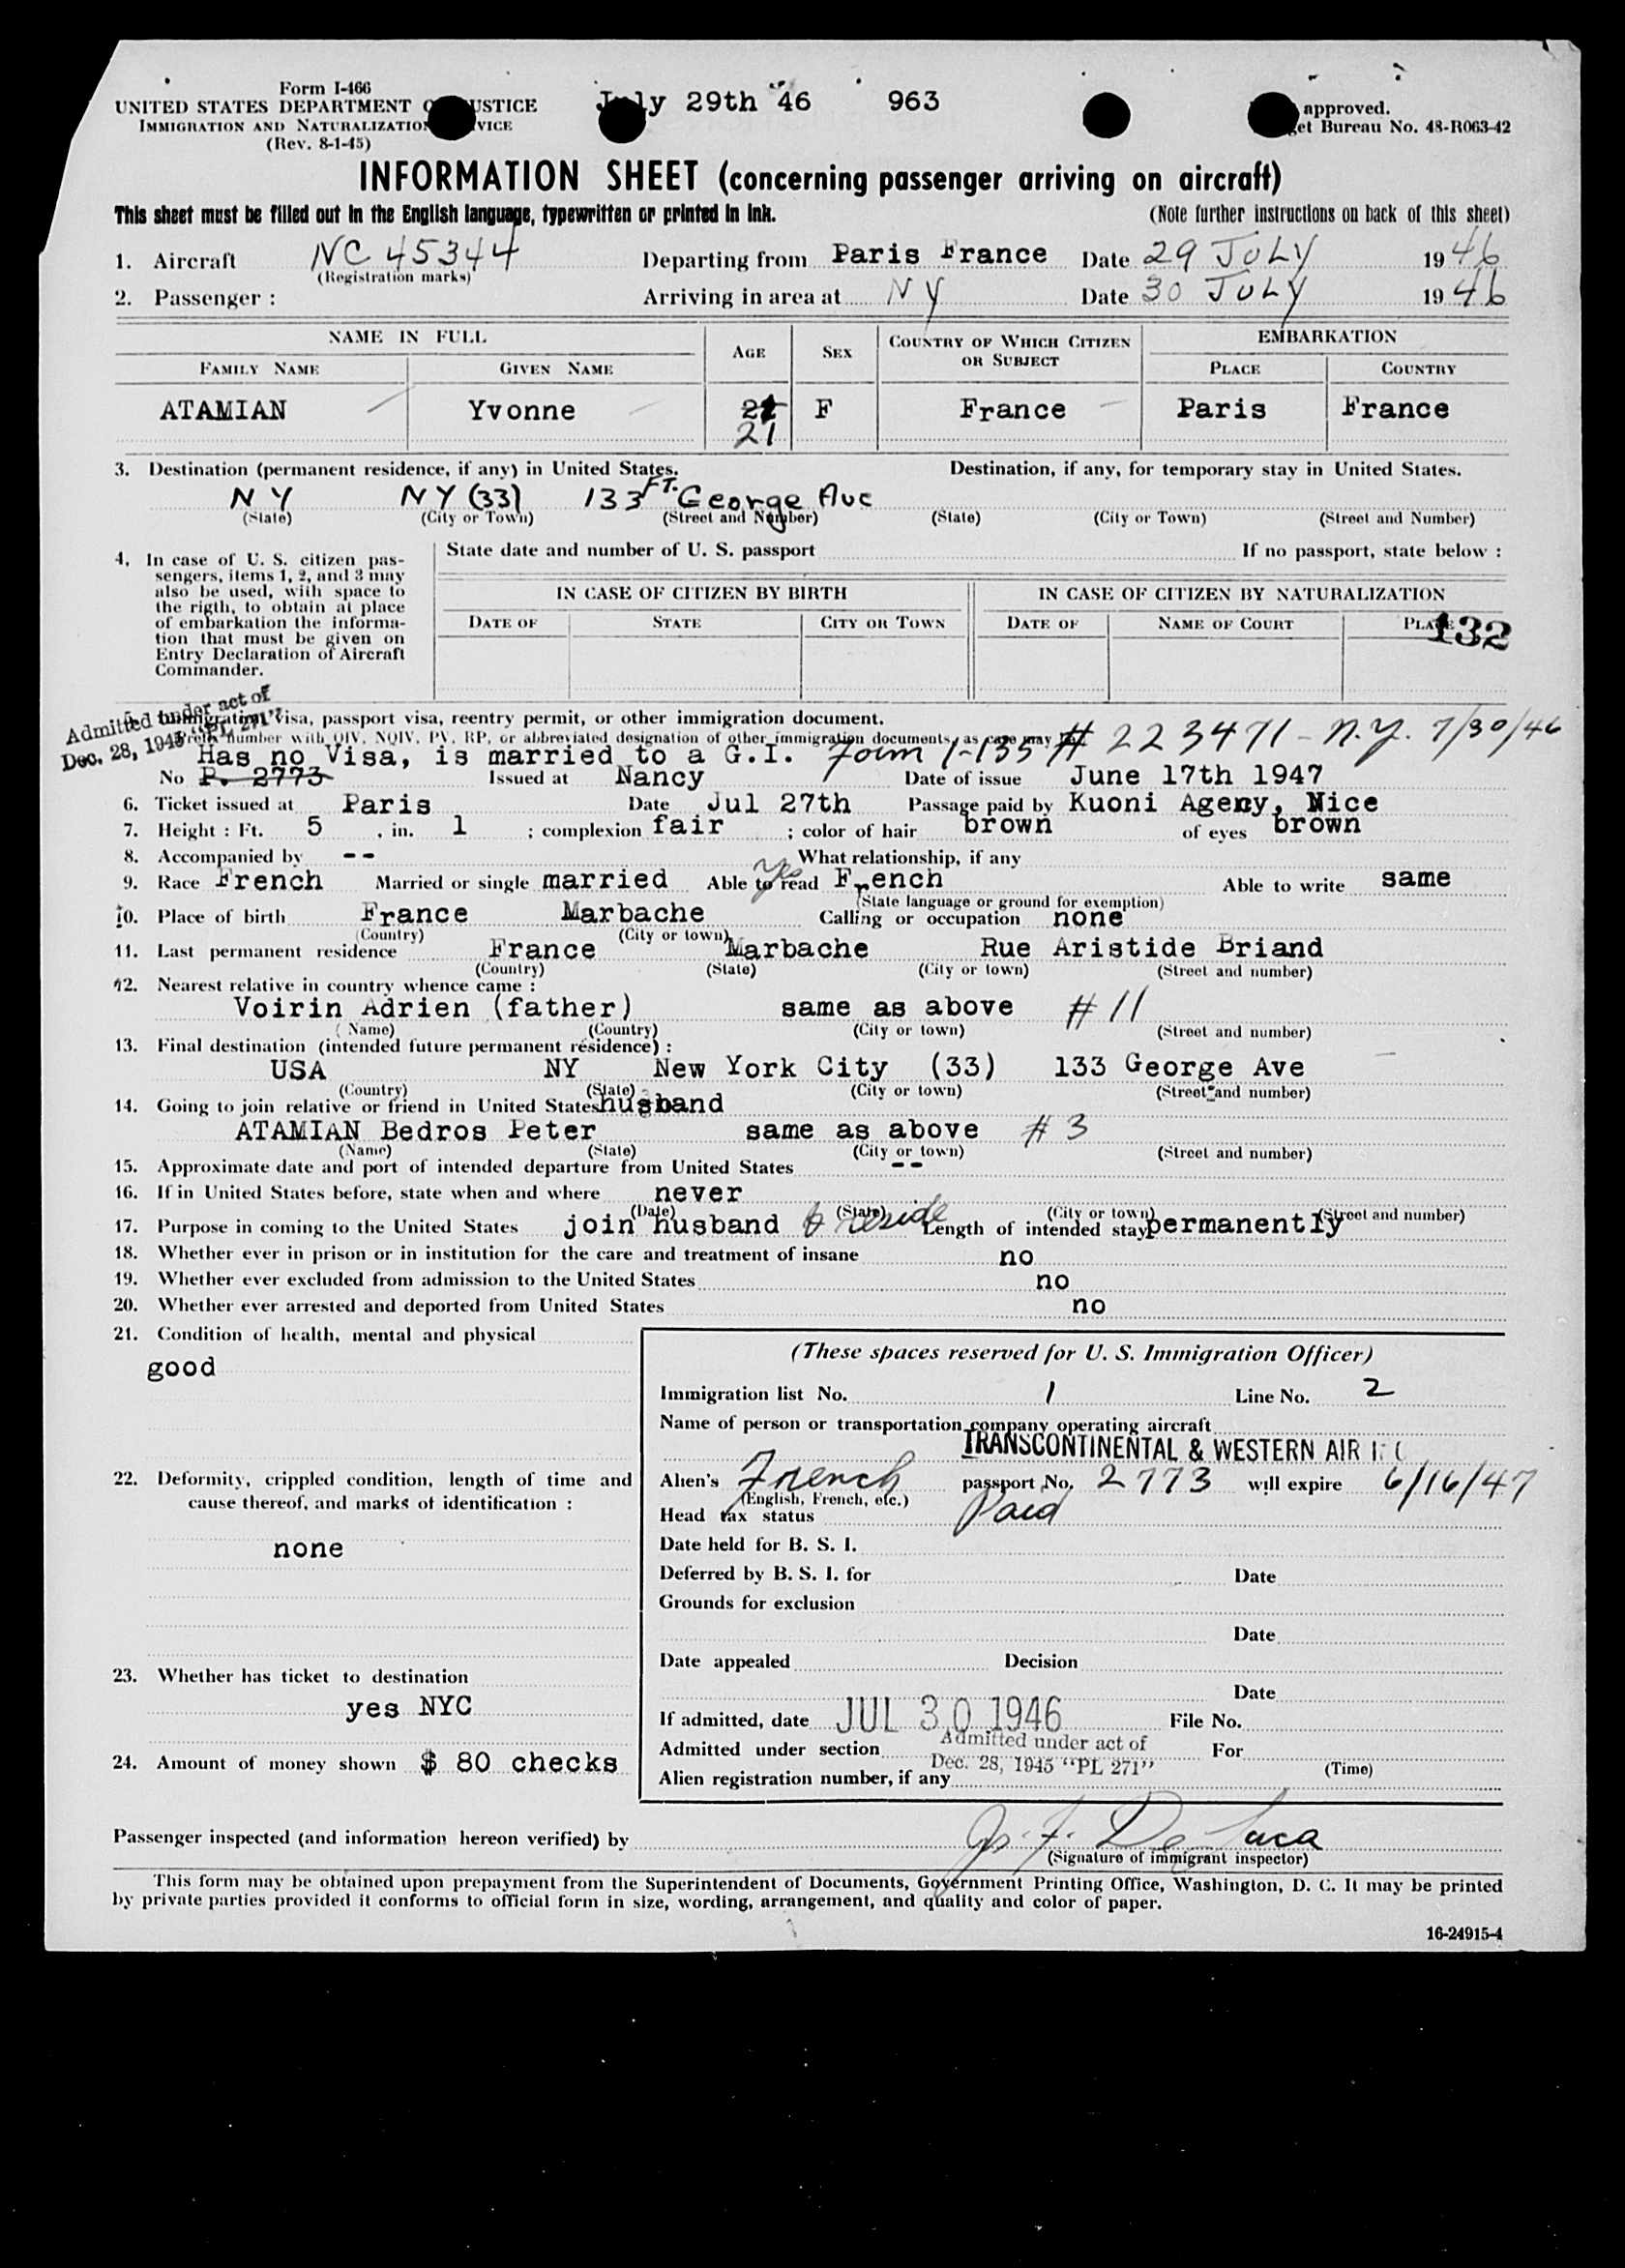 Form I-466
UNITED STATES DEPARTMENT O USTICE
IMMIGRATION AND NATURALIZATION VICE
(Rev. 8-1-45)
July 29th 46 963
approved.
et Bureau No. 43-R063-42
INFORMATION SHEET (concerning passenger arriving on aircraft)
This sheet must be filled out in the English language, typewritten or printed in ink. (Note further instructions on back of this sheet)
1. Aircraft NC 45344 Departing from Paris France Date 29 JULY 1946
(Registration marks)
2. Passenger : Arriving in area at NY Date 30 JULY 1946
NAME IN FULL AGE SEX COUNTRY OF WHICH CITIZEN OR SUBJECT EMBARKATION
FAMILY NAME GIVEN NAME PLACE COUNTRY
ATAMIAN Yvonne F France Paris France
21
3. Destination (permanent residence, if any) in United States. Destination, if any, for temporary stay in United States.
NY NY (33) 133 FT. George Ave
(State) (City or Town) (Street and Number) (State) (City or Town) (Street and Number)
4. In case of U. S. citizen pas-
sengers, items 1, 2, and 3 may
also be used, with space to
the rigth, to obtain at place
of embarkation the informa-
tion that must be given on
Entry Declaration of Aircraft
Commander.
State date and number of U. S. passport If no passport, state below :
IN CASE OF CITIZEN BY BIRTH IN CASE OF CITIZEN BY NATURALIZATION
DATE OF STATE CITY OR TOWN DATE OF NAME OF COURT PLACE
132
Admitted under act of
Dec. 28, 1945 "PL 271"
5. Immigration visa, passport visa, reentry permit, or other immigration document.
Prefix number with QIV, NQIV, PV, RP, or abbreviated designation of other immigration documents, as case may be
Has no Visa, is married to a G.I. Form I-135 # 223471 - N.Y. 7/30/46
No P. 2773 Issued at Nancy Date of issue June 17th 1947
6. Ticket issued at Paris Date Jul 27th Passage paid by Kuoni Agency, Nice
7. Height : Ft. 5 , in. 1 ; complexion fair ; color of hair brown of eyes brown
8. Accompanied by -- What relationship, if any
9. Race French Married or single married Able to read yes French Able to write same
(State language or ground for exemption)
10. Place of birth France Marbache Calling or occupation none
(Country) (City or town)
11. Last permanent residence France Marbache Rue Aristide Briand
(Country) (State) (City or town) (Street and number)
12. Nearest relative in country whence came :
Voirin Adrien (father) same as above # 11
(Name) (Country) (City or town) (Street and number)
13. Final destination (intended future permanent residence) :
USA NY New York City (33) 133 George Ave
(Country) (State) (City or town) (Street and number)
14. Going to join relative or friend in United States husband
ATAMIAN Bedros Peter same as above # 3
(Name) (State) (City or town) (Street and number)
15. Approximate date and port of intended departure from United States --
16. If in United States before, state when and where never
(Date) (State) (City or town) (Street and number)
17. Purpose in coming to the United States join husband to reside Length of intended stay permanently
18. Whether ever in prison or in institution for the care and treatment of insane no
19. Whether ever excluded from admission to the United States no
20. Whether ever arrested and deported from United States no
21. Condition of health, mental and physical
good
22. Deformity, crippled condition, length of time and
cause thereof, and marks of identification :
none
23. Whether has ticket to destination
yes NYC
24. Amount of money shown $ 80 checks
(These spaces reserved for U. S. Immigration Officer)
Immigration list No. 1 Line No. 2
Name of person or transportation company operating aircraft
TRANSCONTINENTAL & WESTERN AIR
Alien's French passport No. 2773 will expire 6/16/47
(English, French, etc.)
Head tax status Paid
Date held for B. S. I.
Deferred by B. S. I. for Date
Grounds for exclusion
Date
Date appealed Decision
Date
If admitted, date JUL 30 1946 File No.
Admitted under section Admitted under act of For
Dec. 28, 1945 "PL 271" (Time)
Alien registration number, if any
Passenger inspected (and information hereon verified) by Jos. F. De Luca
(Signature of immigrant inspector)
This form may be obtained upon prepayment from the Superintendent of Documents, Government Printing Office, Washington, D. C. It may be printed
by private parties provided it conforms to official form in size, wording, arrangement, and quality and color of paper.
16-24915-4